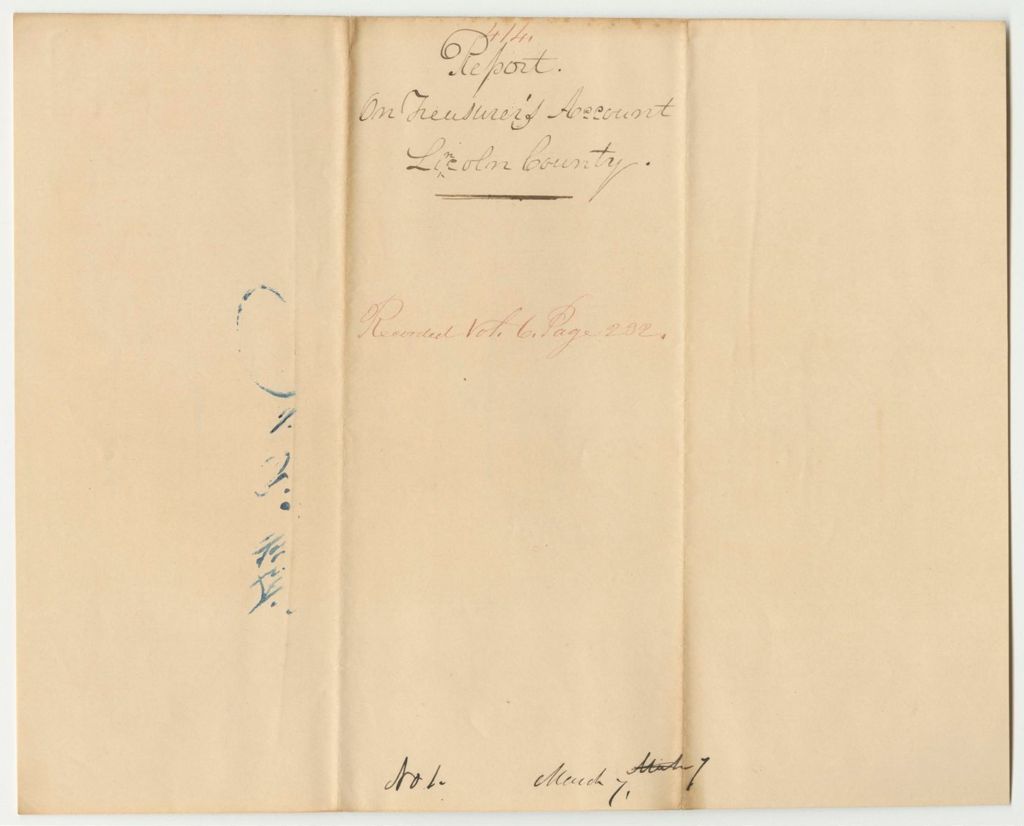 414.
Report.
On Treasurer's Account
Lincoln County.
Recorded Vol. 6. Page 232.
No 1. March 7,